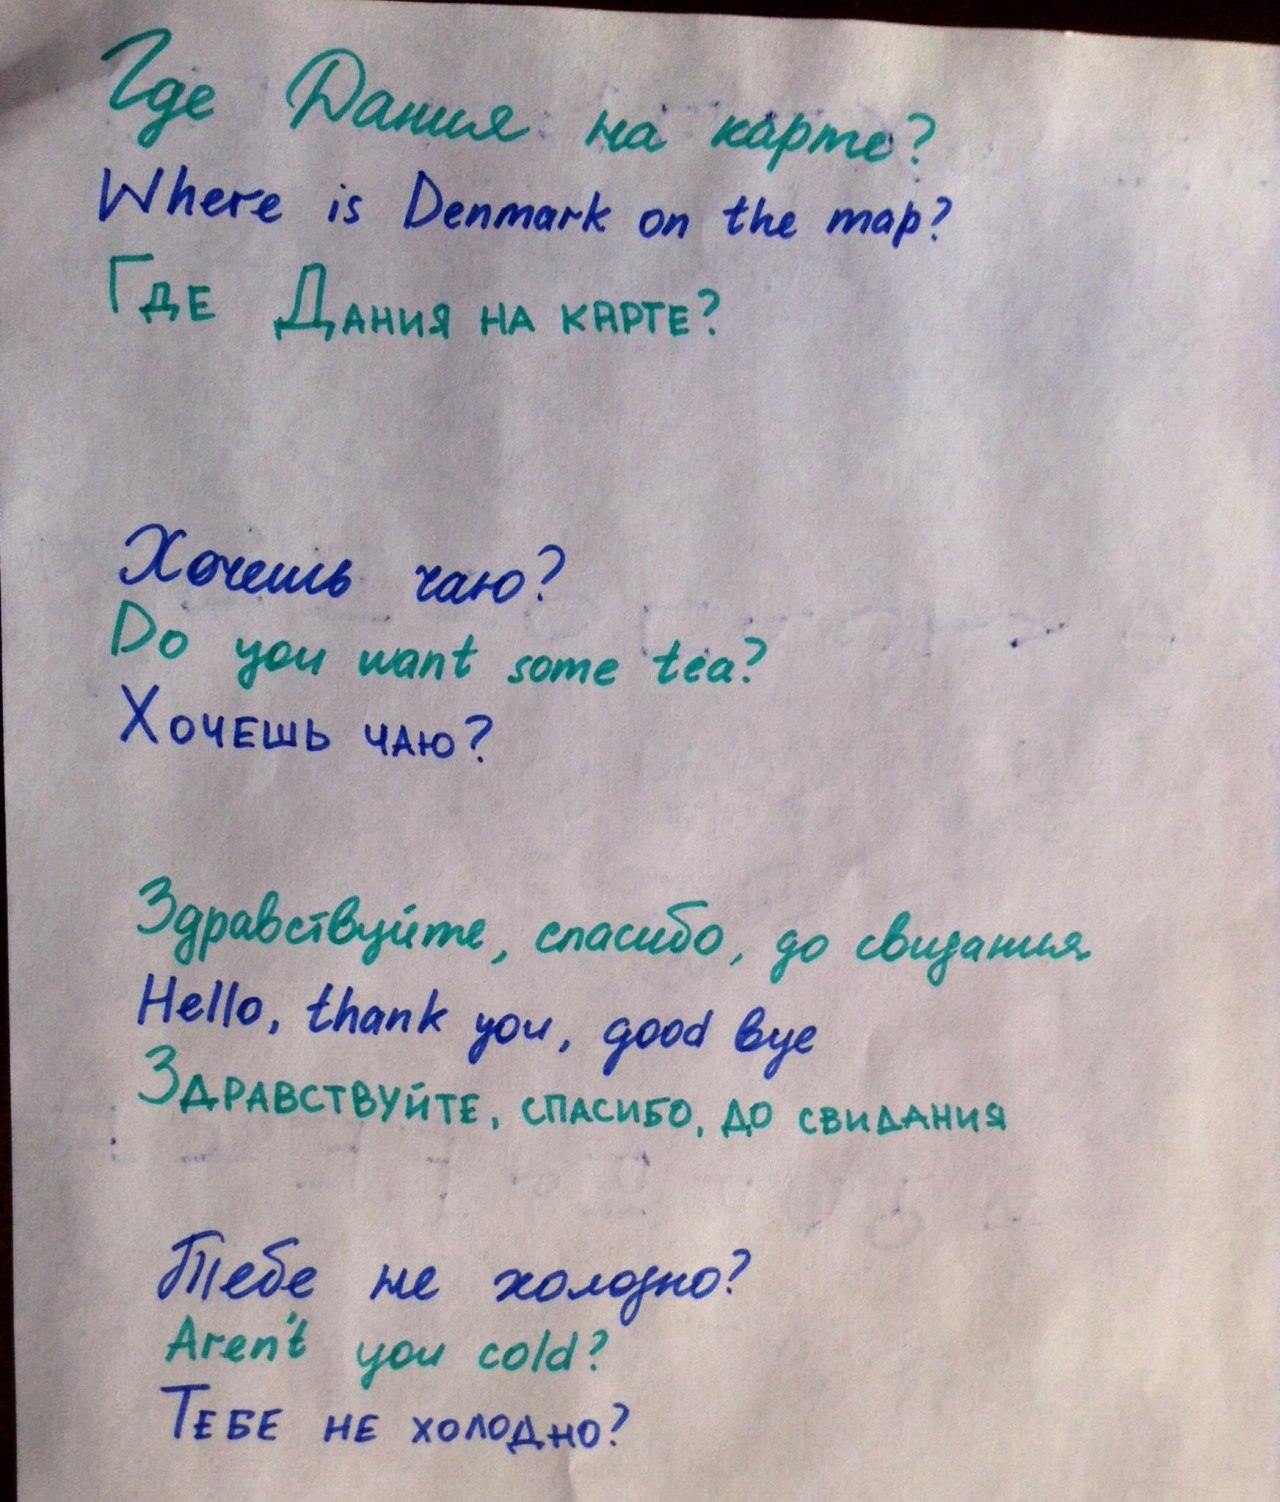 Где Дания на карте?
Where is Denmark on the map?
Где Дания на карте?
Хочешь чаю?
Do you want some tea?
Хочешь чаю?
Здравствуйте, спасибо, до свидания
Hello, thank you, good bye
Здравствуйте, спасибо, до свидания
Тебе не холодно?
Aren't you cold?
Тебе не холодно?